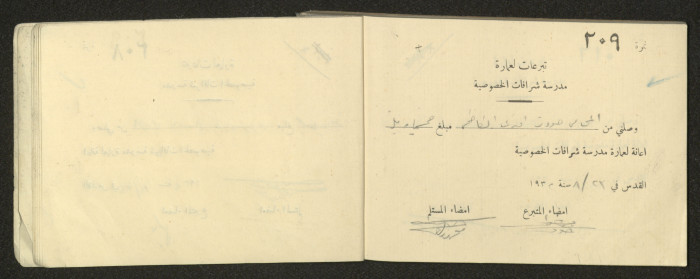 نمرة ٢٠٩
تبرعات لعمارة
مدرسة شرافات الخصوصية
وصلني من المحامي افندي مبلغ
اعانة لعمارة مدرسة شرافات الخصوصية
القدس في ٢٦/٨ سنة ١٩٣٠
امضاء المتبرع امضاء المستلم